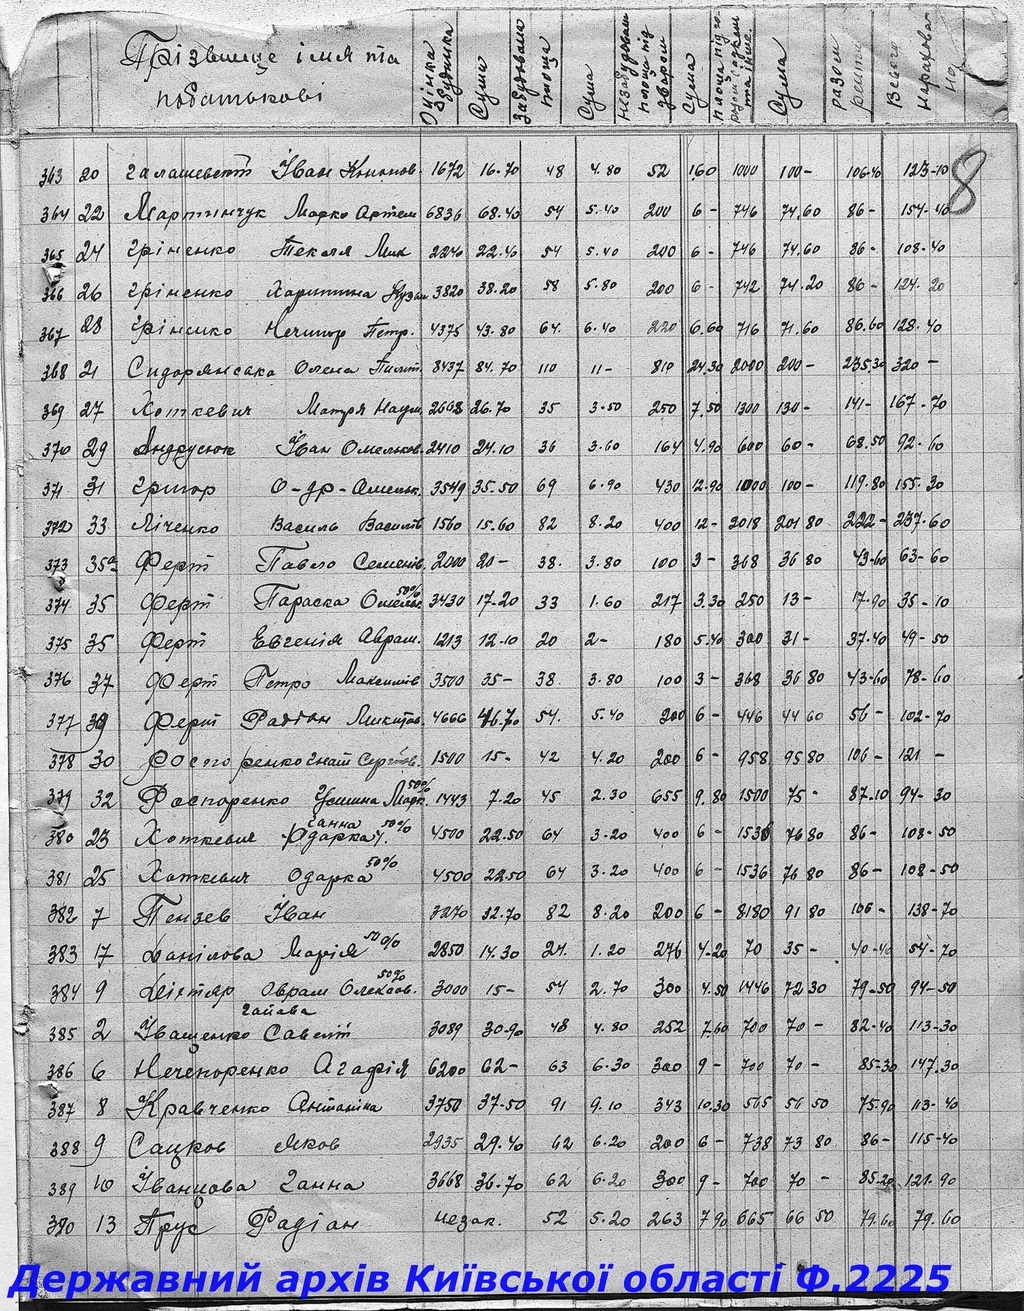 Прізвище імя та
побатькові
Оцінка будинка
Сума
Забудована площа
Сума
Незабудована площа під двором
Сума
площа під городом садком та інше
Сума
разом ренти
Всього нарахован
8
363 20 Галашевст Іван Кононов. 1672 16.70 48 4.80 52 1.60 1000 100- 106.40 123-10
364 22 Мартинчук Марко Артем 6836 68.40 54 5.40 200 6- 746 74.60 86- 154-40
365 24 Гріненко Текля Мик 2240 22.40 54 5.40 200 6- 746 74.60 86- 108-40
366 26 Гріненко Харитина Кузьм 3820 38.20 58 5.80 200 6- 742 74.20 86- 124.20
367 28 Гріненко Нечипор Петр. 4375 43.80 64. 6.40 220 6.60 716 71.60 86.60 128.40
368 21 Сидорянська Олена Пилип. 8437 84.70 110 11- 810 24.30 2000 200- 235.30 320-
369 27 Хоткевич Мотря Наум. 2668 26.70 35 3.50 250 7.50 1300 130- 141- 167.70
370 29 Андрусюк Іван Омельков. 2410 24.10 36 3.60 164 4.90 600 60- 68.50 92.60
371 31 Григор О-др-Омельк. 3549 35.50 69 6.90 430 12.90 1000 100- 119.80 155.30
372 33 Ліченко Василь Василів 1560 15.60 82 8.20 400 12- 2018 201 80 222- 237.60
373 35а Ферт Павло Семенів. 2000 20- 38. 3.80 100 3- 368 36 80 43-60 63-60
374 35 Ферт Параска Омельк 50% 3430 17.20 33 1.60 217 3.30 250 13- 17.90 35-10
375 35 Ферт Евгенія Аврам. 1213 12.10 20 2- 180 5.40 300 31- 37.40 49-50
376 37 Ферт Петро Максимів 3500 35- 38. 3.80 100 3- 368 36 80 43-60 78-60
377 39 Ферт Радіон Микитов. 4666 46.70 54. 5.40 200 6- 446 44 60 56- 102-70
378 30 Роспоренко Гнат Сергіов. 1500 15- 42 4.20 200 6- 958 95 80 106- 121-
379 32 Распоренко Устина Марк. 50% 1443 7.20 45 2.30 655 9.80 1500 75- 87-10 94-30
380 23 Хоткевич Ганна Одарка 50% 4500 22.50 64 3.20 400 6- 1536 76 80 86- 108-50
381 25 Хоткевич Одарка 50% 4500 22.50 64 3.20 400 6- 1536 76 80 86- 108-50
382 7 Пензев Іван 3270 32.70 82 8.20 200 6- 8180 91 80 106- 138-70
383 17 Данілова Марія 50% 2850 14.30 24. 1.20 276 4-20 70 35- 40-40 54-70
384 9 Дігтяр Оврам Олексов. 50% 3000 15- 54 2.70 300 4.50 1446 72 30 79-50 94-50
385 2 Іващенко Гапова Савет 3089 30-90 48 4.80 252 7.60 700 70- 82-40 113-30
386 6 Нечепоренко Агафія 6200 62- 63 6.30 300 9- 700 70- 85-30 147.30
387 8 Кравченко Антаніна 3750 37-50 91 9.10 343 10.30 565 56 50 75.90 113-40
388 9 Сацков Яков 2935 29.40 62 6.20 200 6- 738 73 80 86- 115-40
389 10 Іванцова Ганна 3668 36.70 62 6.20 300 9- 700 70- 85.20 121.90
390 13 Прус Радіан незак. 52 5.20 263 7 90 665 66 50 79.60 79.60
Державний архів Київської області Ф.2225